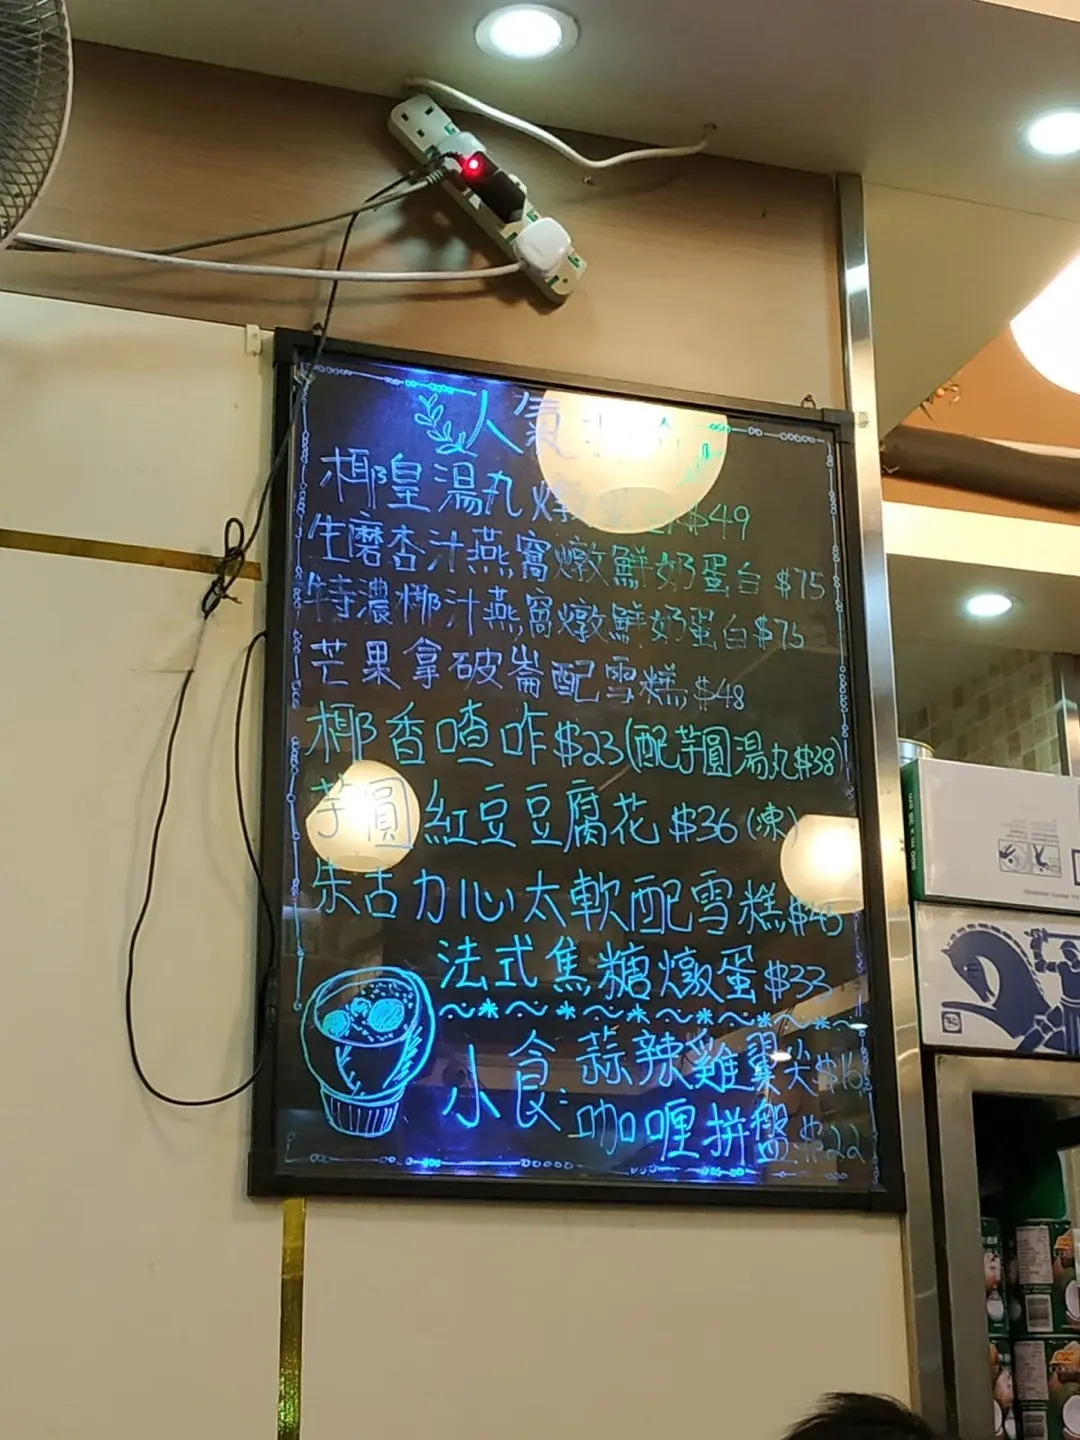 人氣推介
椰皇湯丸燉$49
生磨杏汁燕窩燉鮮奶蛋白$75
特濃椰汁燕窩燉鮮奶蛋白$75
芒果拿破崙配雪糕$48
椰香喳咋$23(配芋圓湯丸$38)
芋圓紅豆豆腐花$36(凍)
朱古力心太軟配雪糕$45
法式焦糖燉蛋$33
小食:蒜辣雞翼尖$16
咖喱拼盤$22